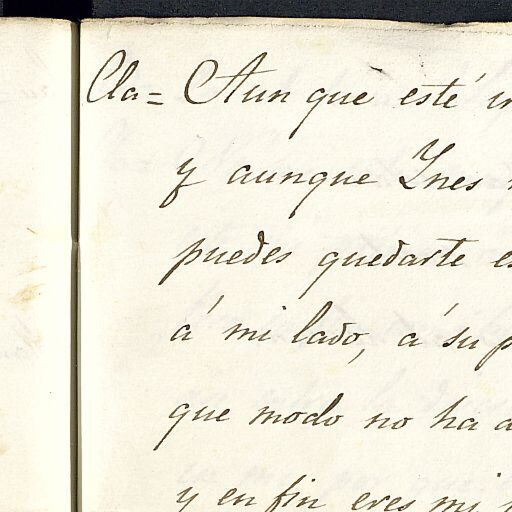 Cla= Aun que esté
y aunque Ynes
puedes quedarte
á mi lado, á su
que modo no ha
y en fin eres mi